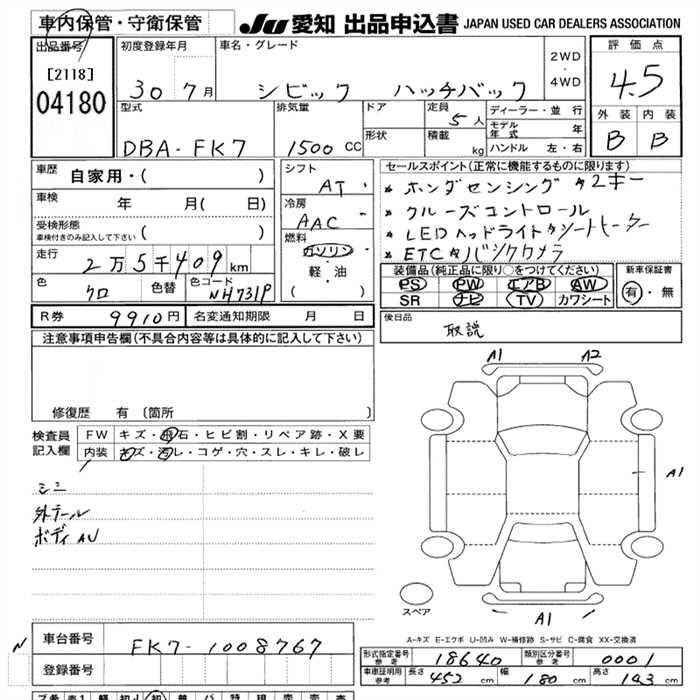 車内保管・守衛保管
JU 愛知 出品申込書 JAPAN USED CAR DEALERS ASSOCIATION
出品番号
[2118]
04180
初度登録年月
30年 7月
車名・グレード
シビック ハッチバック
2WD
・
4WD
評価点
4.5
外装 内装
B B
型式
DBA-FK7
排気量
1500 CC
ドア
形状
定員
5人
積載 kg
ディーラー・並行
モデル年式 年
ハンドル 左・右
車歴
自家用・( )
車検 年 月( 日)
受検形態
車検付きのみ記入して下さい ( )
走行
2万5千409 km
色
クロ
色替
色コード
NH731P
シフト
AT
冷房
AAC
燃料
ガソリン
・
軽・油
( )
セールスポイント(正常に機能するものに限ります)
* ホンダセンシング *2キー
* クルーズコントロール
* LEDヘッドライト *シートヒーター
* ETC *バックカメラ
装備品(純正品に限り○をつけてください)
PS PW エアB AW
SR ナビ TV カワシート
新車保証書
有・無
R券 9910円
名変通知期限 月 日
後日品
取説
注意事項申告欄(不具合内容等は具体的に記入して下さい)
修復歴 有 〔箇所 〕
検査員
記入欄
FW キズ・飛石・ヒビ割・リペア跡・X要
内装 キズ・汚レ・コゲ・穴・スレ・キレ・破レ
シミ
外テール
ボディAU
A1 A2
A1
A1
スペア
A-キズ E-エクボ U-凹み W-補修跡 S-サビ C-腐食 XX-交換済
N
車台番号
FK7-1008767
登録番号
形式指定番号
参考
18640
類別区分番号
参考
0001
車庫証明用
参考
長さ 452 cm
幅 180 cm
高さ 143 cm